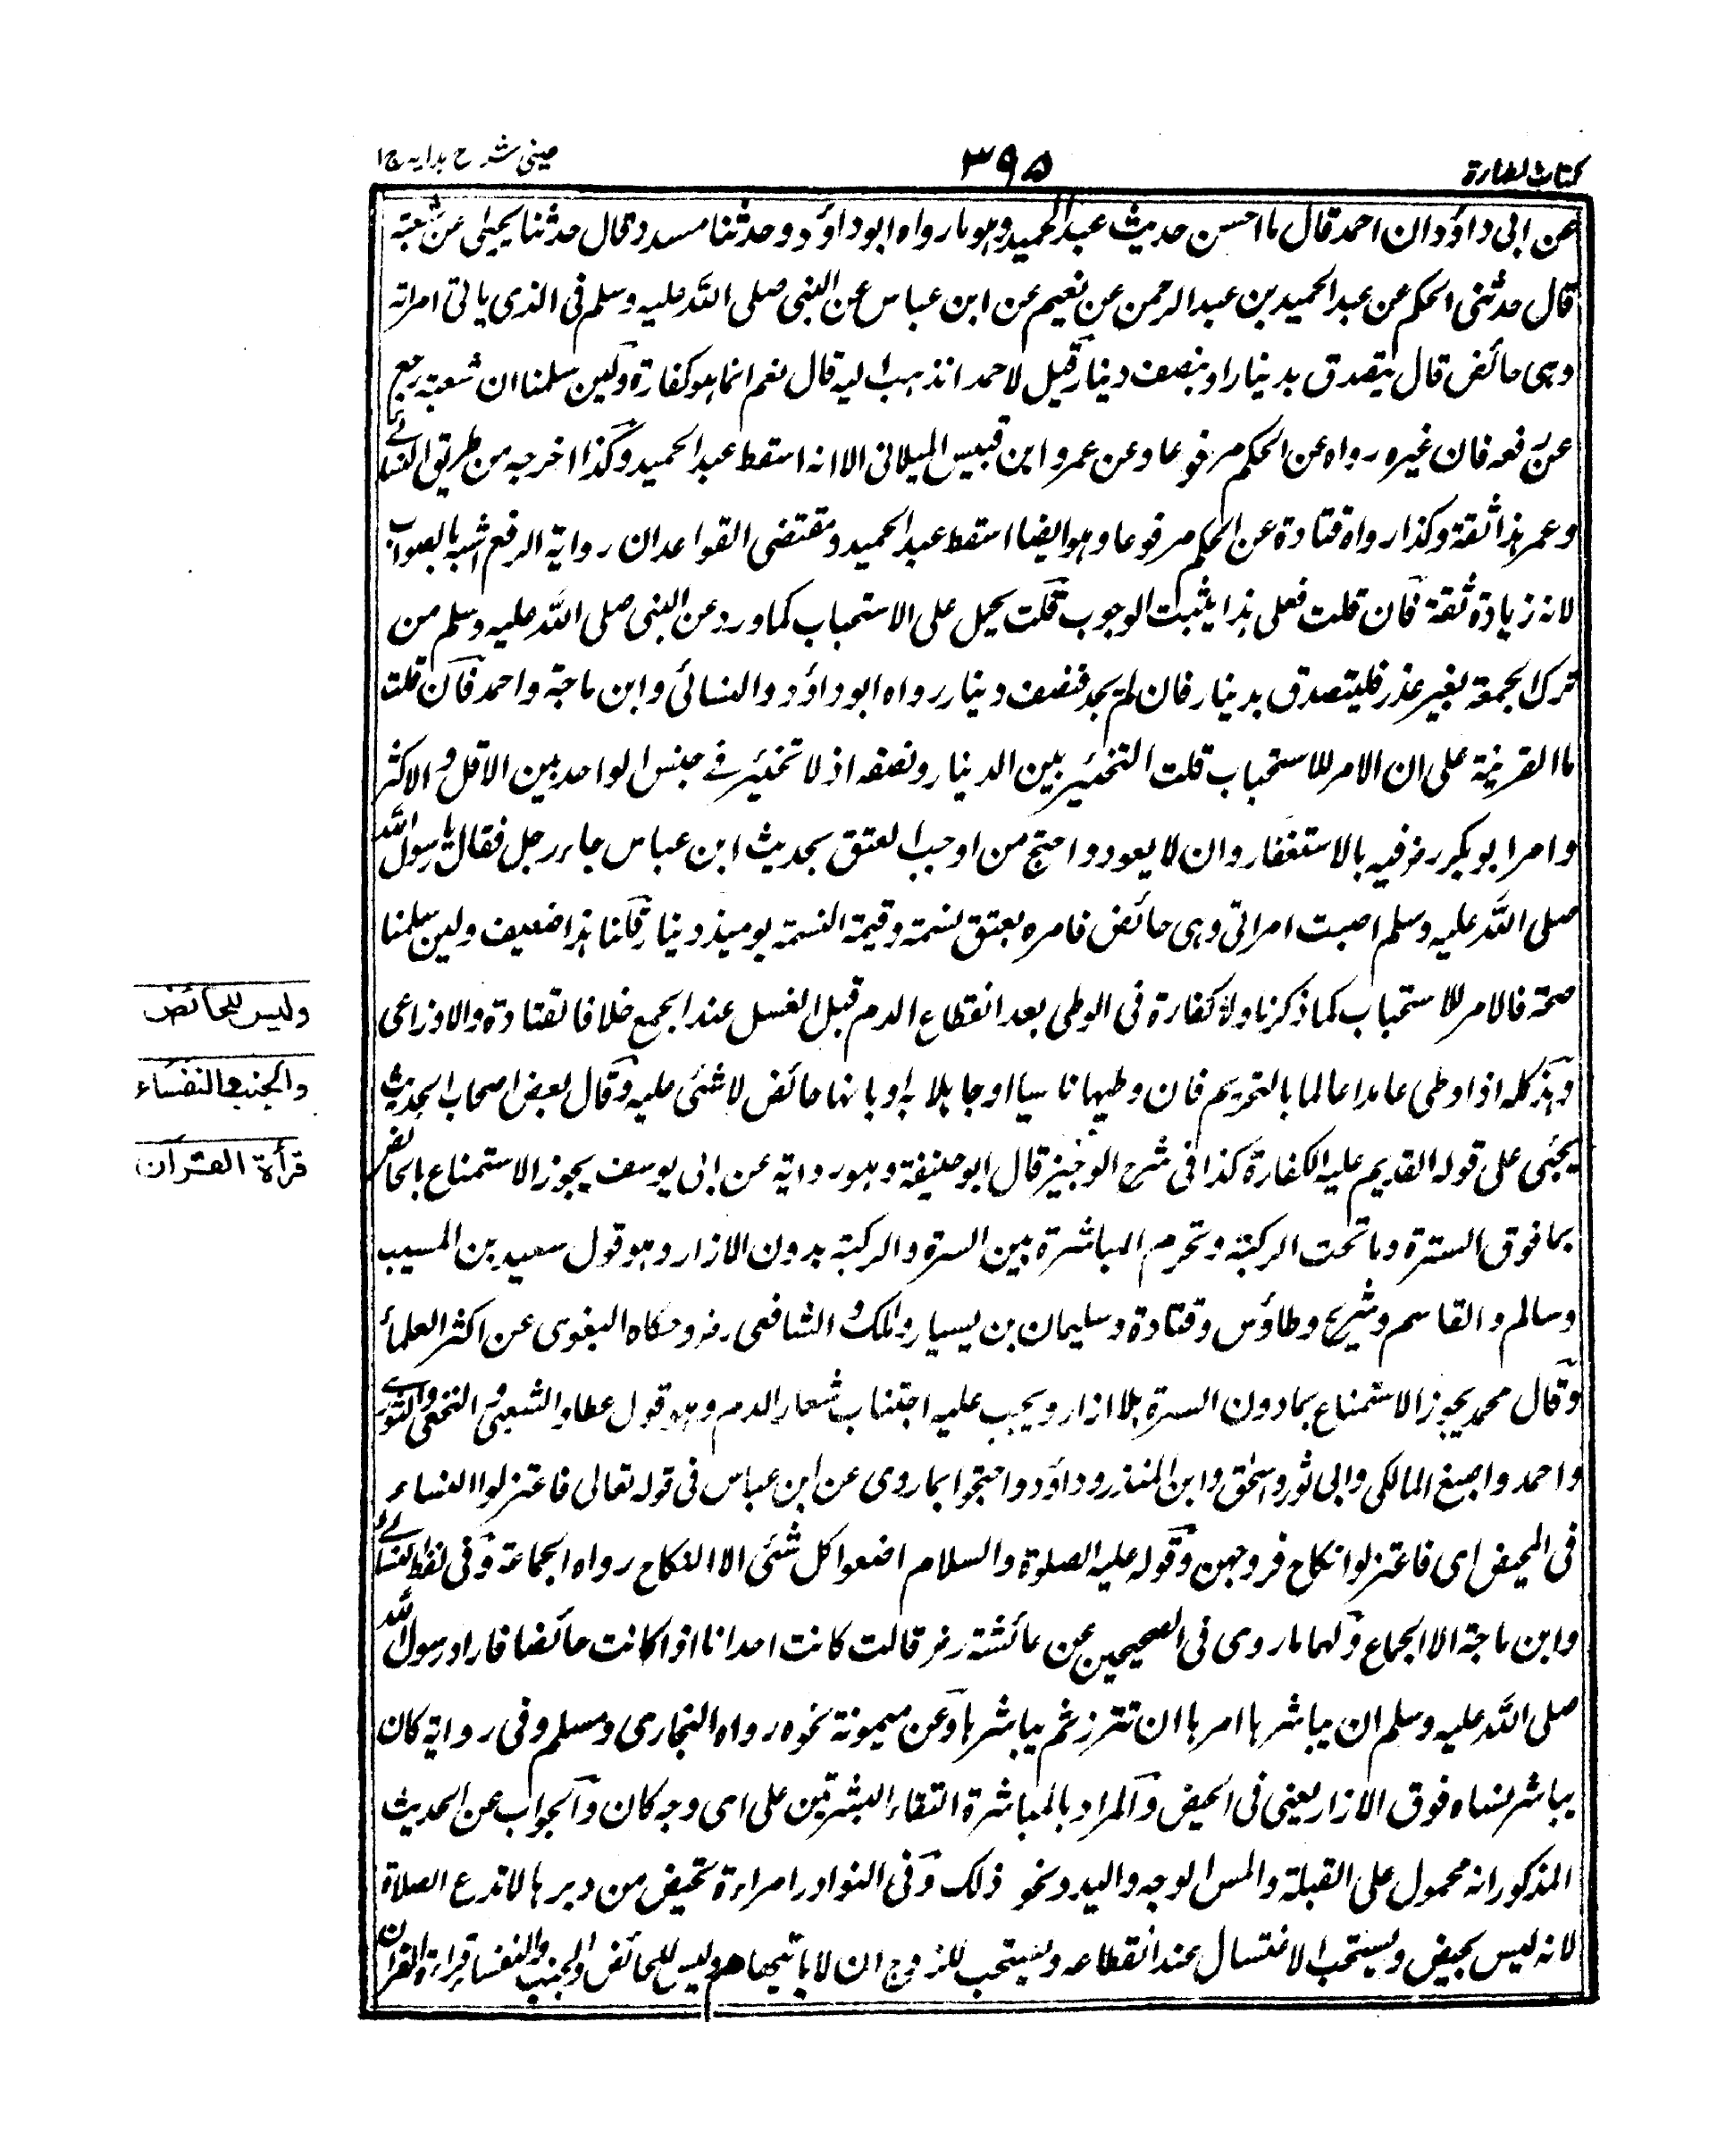 كتاب الطهارة
٣٩٥
عينى شرح هدايه ج١
عن ابى داؤد ان احمد قال ما احسن حديث عبد الحميد وهو ما رواه ابو داؤد وحدثنا مسدد قال حدثنا يحيى عن شعبة
قال حدثنى الحكم عن عبد الحميد بن عبد الرحمن عن نعيم عن ابن عباس عن النبى صلى الله عليه وسلم فى الذى ياتى امراته
وهى حائض قال يتصدق بدينار او بنصف دينار قيل لاحمد اتذهب اليه قال نعم انما هو كفارة ولئن سلمنا ان شعبة رجع
عن رفعه فان غيره رواه عن الحكم مرفوعا وعن عمرو ابن قيس الميلانى الا انه اسقط عبد الحميد وكذا اخرجه من طريق النسائے
وعمر هذا ثقة وكذا رواه قتادة عن الحكم مرفوعا وهو ايضا اسقط عبد الحميد ومقتضى القواعد ان رواية الرفع اشبه بالصواب
لانه زيادة ثقة فان قلت فعلى هذا يثبت الوجوب قلت يحمل على الاستحباب كما ورد عن النبى صلى الله عليه وسلم من
ترك الجمعة بغير عذر فليتصدق بدينار فان لم يجد فنصف دينار رواه ابو داؤد والنسائى وابن ماجة واحمد فان قلت
ما القرينة على ان الامر للاستحباب قلت التخئير بين الدينار ونصفه اذ لا تخئير فے جنس الواحد بين الاقل والاكثر
وامر ابو بكر رضر فيه بالاستغفار وان لا يعود واحتج من اوجب العتق بحديث ابن عباس جاء رجل فقال يا رسول الله
صلى الله عليه وسلم اصبت امراتى وهى حائض فامره بعتق نسمة وقيمة النسمة يوميذ دينار قلنا هذا ضعيف ولئن سلمنا
صحة فالامر للاستحباب كما ذكرنا ولا كفارة فى الوطى بعد انقطاع الدم قبل الغسل عند الجمع خلافا لقتادة والاوزاعى
وهذا كله اذا وطى عامدا عالما بالتحريم فان وطيها ناسيا او جاهلا به او بانها حائض لا شئى عليه وقال بعض اصحاب الحديث
يجئى على قوله القديم عليه الكفارة كذا فى شرح الوجيز قال ابو حنيفة وهو رواية عن ابى يوسف يجوز الاستمتاع بالحائض
بما فوق السترة وما تحت الركبة وتحرم المباشرة بين السرة والركبة بدون الازار وهو قول سعيد بن المسيب
وسالم والقاسم وشريح وطاؤس وقتادة وسليمان بن يسيار ومالك والشافعى رضر وحكاه البغوى عن اكثر العلمائ
وقال محمد يجوز الاستمتاع بما دون السرة بلا ازار ويجب عليه اجتناب شعار الدم وهو قول عطاء والشعبى والنخعى والثورے
واحمد واصبغ المالكى وابى ثور واسحٰق وابن المنذر وداؤد واحتجوا بما روى عن ابن عباس فى قوله تعالى فاعتزلوا النساء
فى المحيض اى فاعتزلوا نكاح فروجهن وقوله عليه الصلوة والسلام اصنعوا كل شئى الا النكاح رواه الجماعة وفى لفظ النسائے
وابن ماجة الا الجماع ولهما ما روى فى الصحيحين عن عائشة رضر قالت كانت احدانا اذا كانت حائضا فاراد رسول الله
صلى الله عليه وسلم ان يباشرها امرها ان تتزر ثم يباشرها وعن ميمونة نحوه رواه البخارى ومسلم وفى رواية كان
يباشر نساه فوق الازار يعنى فى الحيض والمراد بالمباشرة التقاء البشرتين على اى وجه كان والجواب عن الحديث
المذكور انه محمول على القبلة والمس الوجه واليد ونحو ذلك وفى النوادر امراءة تحيض من دبرها لا تدع الصلاة
لانه ليس بحيض ويستحب الاغتسال عند انقطاعه ويستحب للزوج ان لا ياتيها هم وليس للحائض والجنب والنفساء قراءة القران
وليس للحائض
والجنب والنفساء
قرأة القرآن